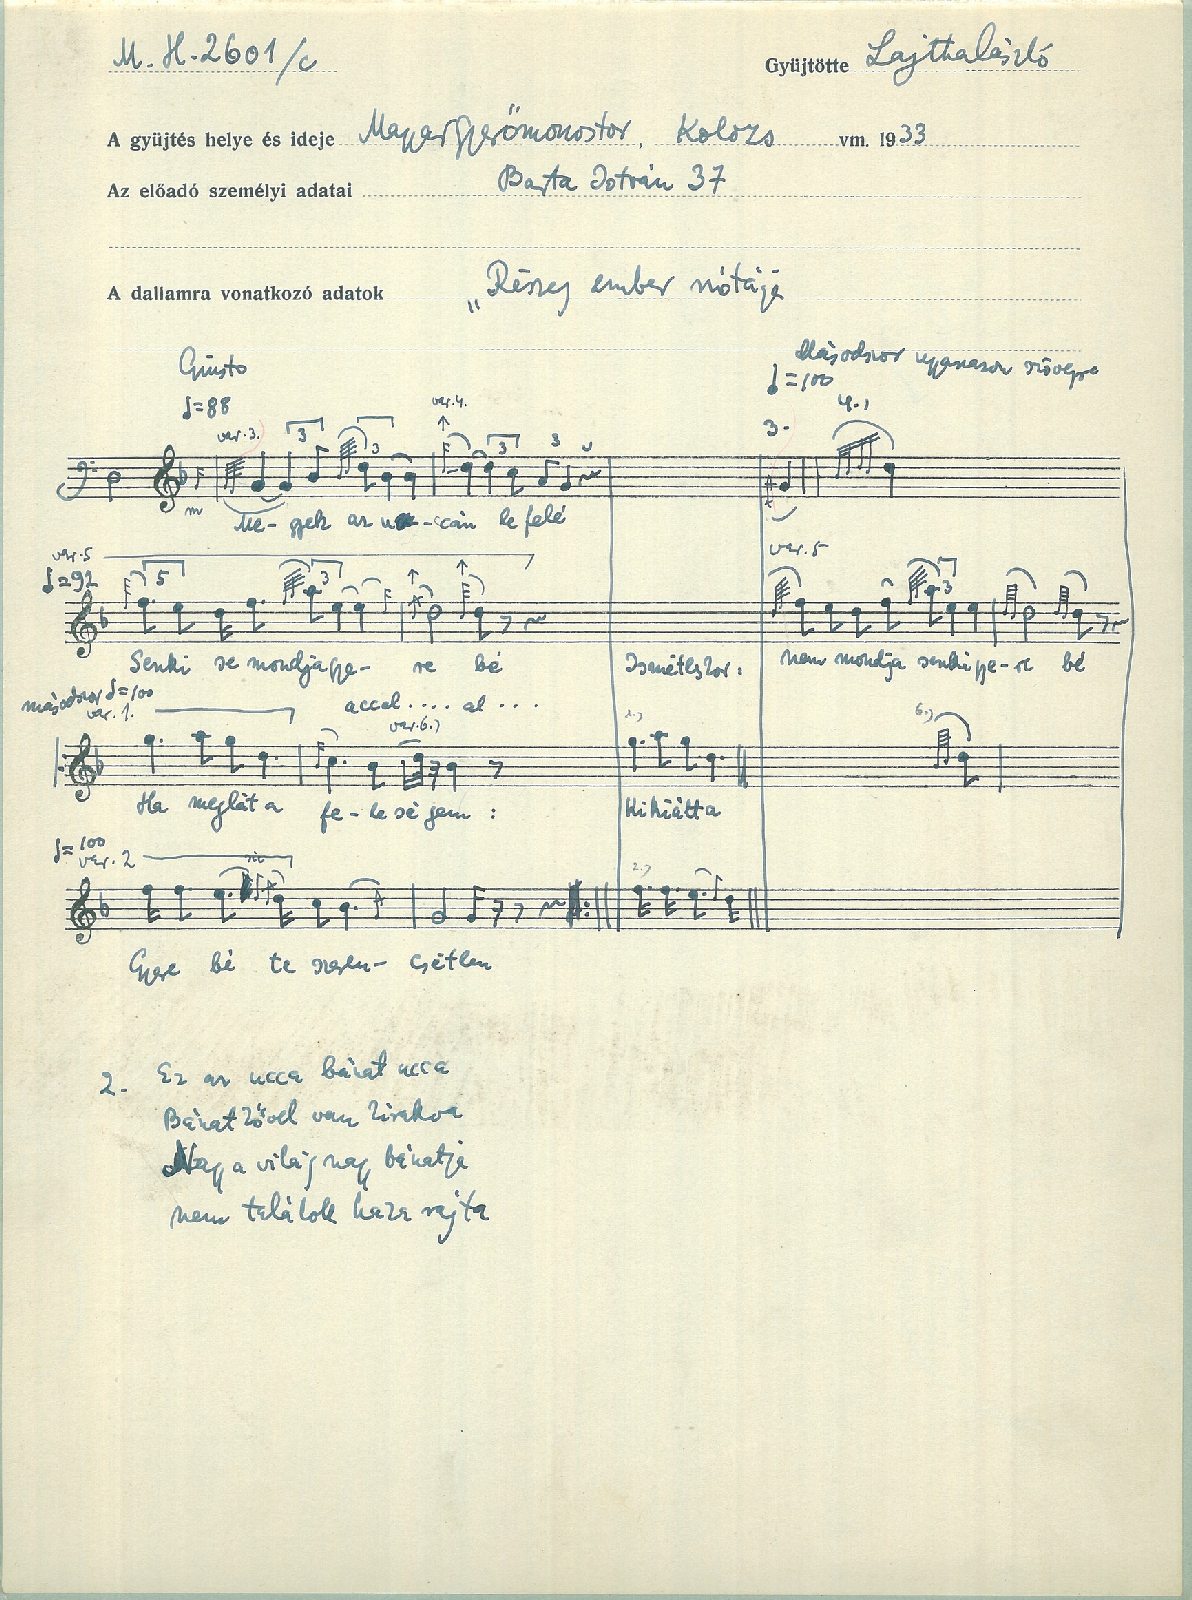 M. H. 2601/c
Gyüjtötte Lajtha László
A gyüjtés helye és ideje Magyargyerőmonostor, Kolozs vm. 1933
Az előadó személyi adatai Barta István 37
A dallamra vonatkozó adatok „Részeg ember nótája
Giusto
Másodszor ugyanazon szövegre
♩=88
♩=100
var. 3.
3
3
var. 4.
3
3
3.
4.)
Me- gyek az uc-cán lefelé
var. 5
♩=92
5
3
var. 5
3
Senki se mondja gye- re bé
Ismétléskor:
nem mondja senki gye-re bé
másodszor ♩=100
var. 1.
accel .... al ...
var. 6.)
2.)
6.)
Ha meglát a fe-leségem :
Ki kiátta
♩=100
var. 2
2.)
Gyere bé te szeren- csétlen
2. Ez az ucca bánat ucca
Bánatkövel van kirakva
Nagy a világ nagy bánatja
nem találok haza rajta